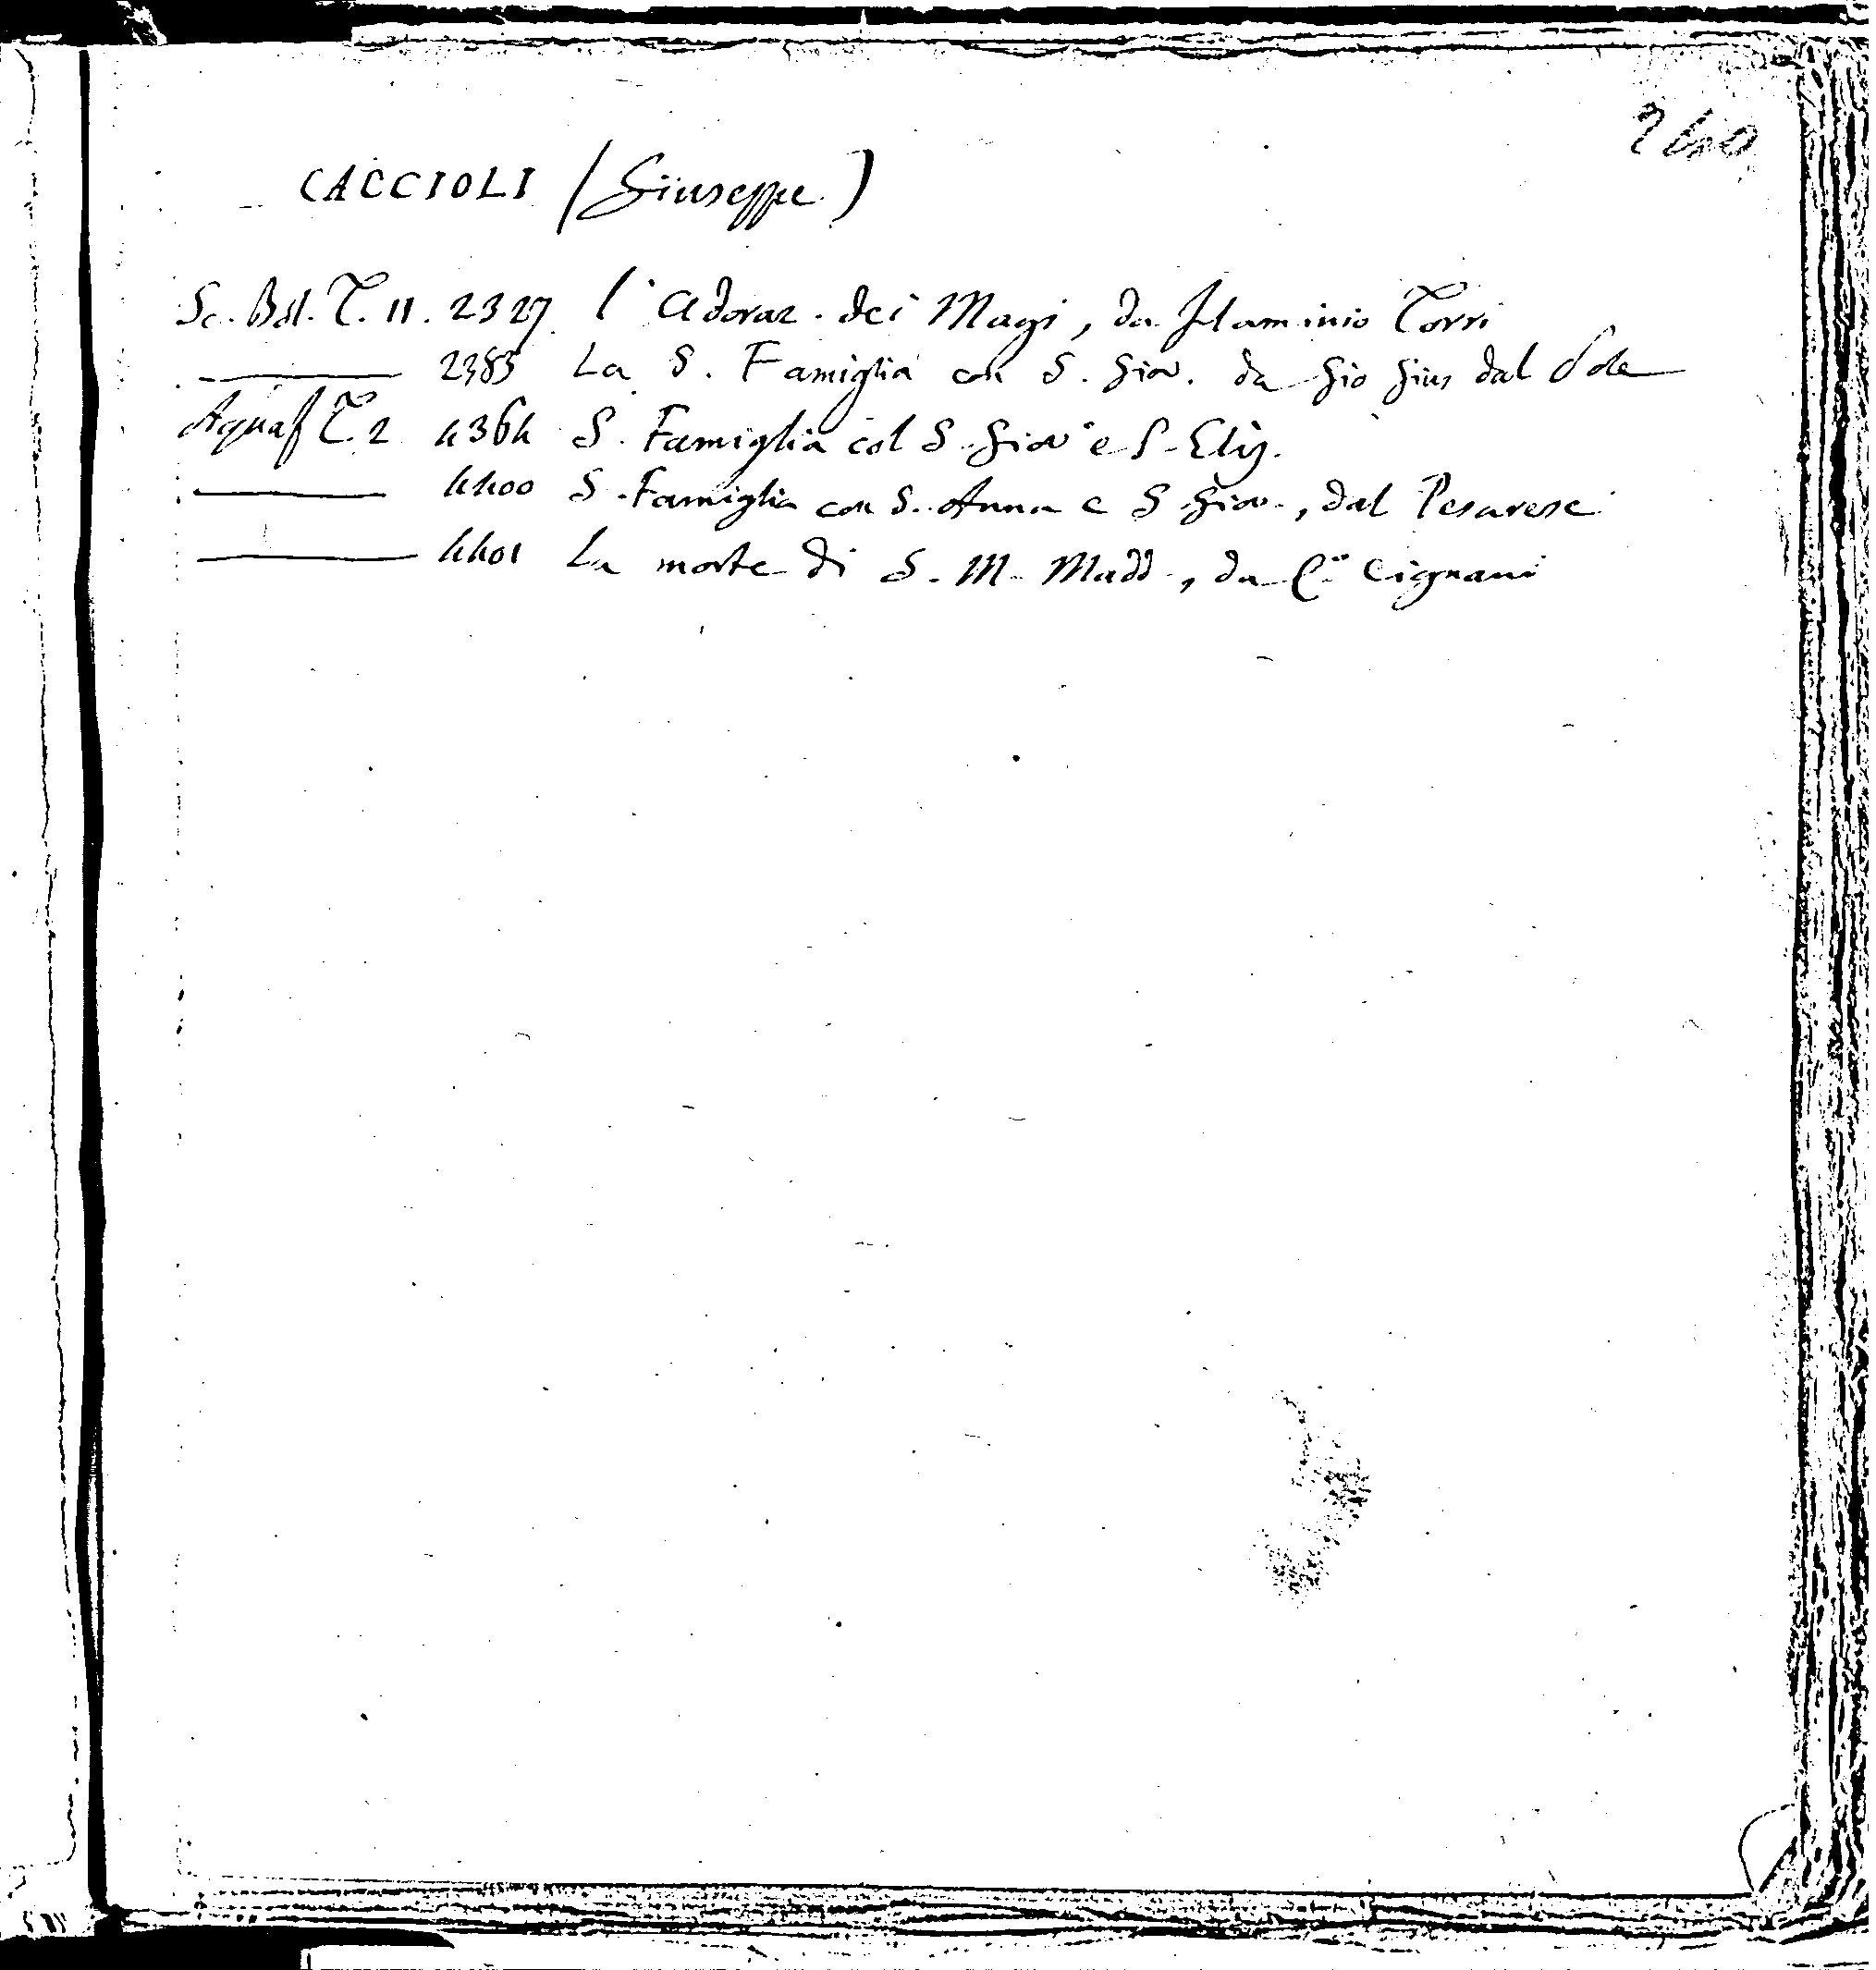 240
CACCIOLI (Giuseppe)
Sc. Bol. T. 11. 2327 l'Adoraz. dei Magi, da Flaminio Torri
——— 2383 La S. Famiglia con S. Giov. da Gio Gius dal Sole
Aquaf T. 2 4364 S. Famiglia col S. Giov e S. Elis.
——— 4400 S. Famiglia con S. Anna e S. Giov., dal Pesarese
——— 4401 La morte di S. M. Madd., da C.º Cignani